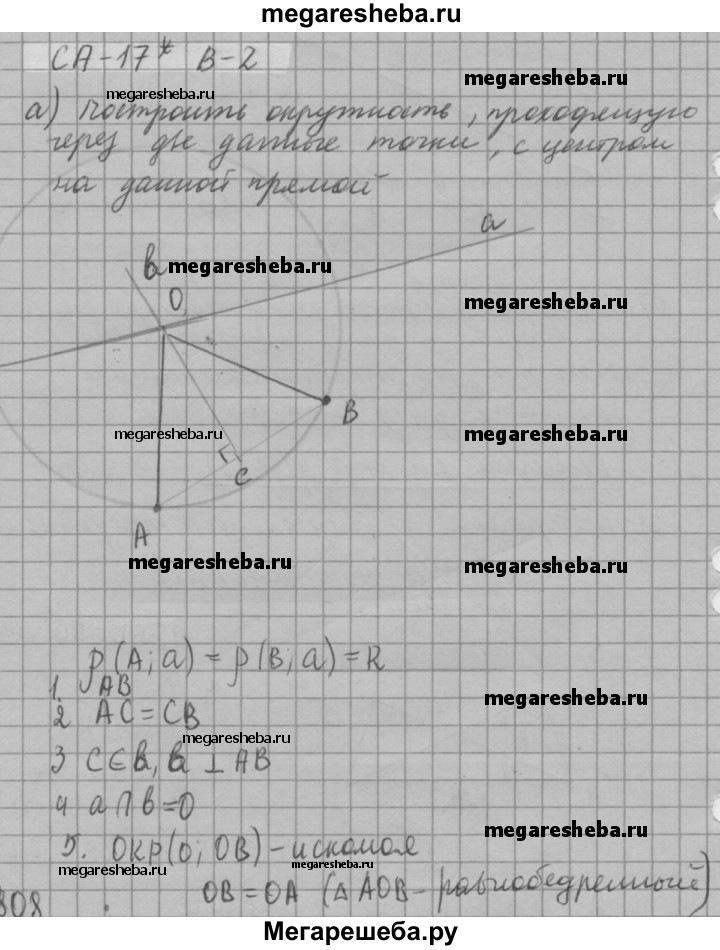 megaresheba.ru
СА-17* В-2
megaresheba.ru
megaresheba.ru
а) Построить окружность, проходящую
через две данные точки, с центром
на данной прямой
a
в
megaresheba.ru
O
megaresheba.ru
B
megaresheba.ru
megaresheba.ru
C
A
megaresheba.ru
megaresheba.ru
ρ(A; a) = ρ(B; a) = R
1. AB
megaresheba.ru
2 AC = CB
megaresheba.ru
3 C∈в, в ⊥ AB
4 a ∩ в = O
megaresheba.ru
5. Окр(O; OB) - искомая
megaresheba.ru
megaresheba.ru
OB = OA (△ AOB - равнобедренный)
808
Мегарешеба.ру